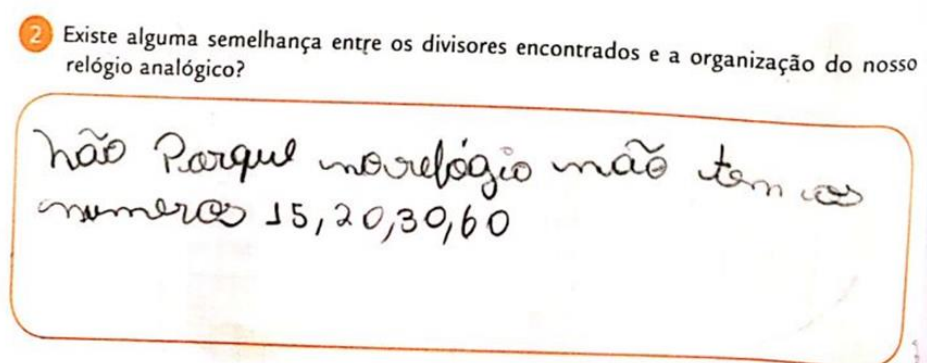 2 Existe alguma semelhança entre os divisores encontrados e a organização do nosso
relógio analógico?
não Porque no relógio não tem os
numeros 15,20,30,60